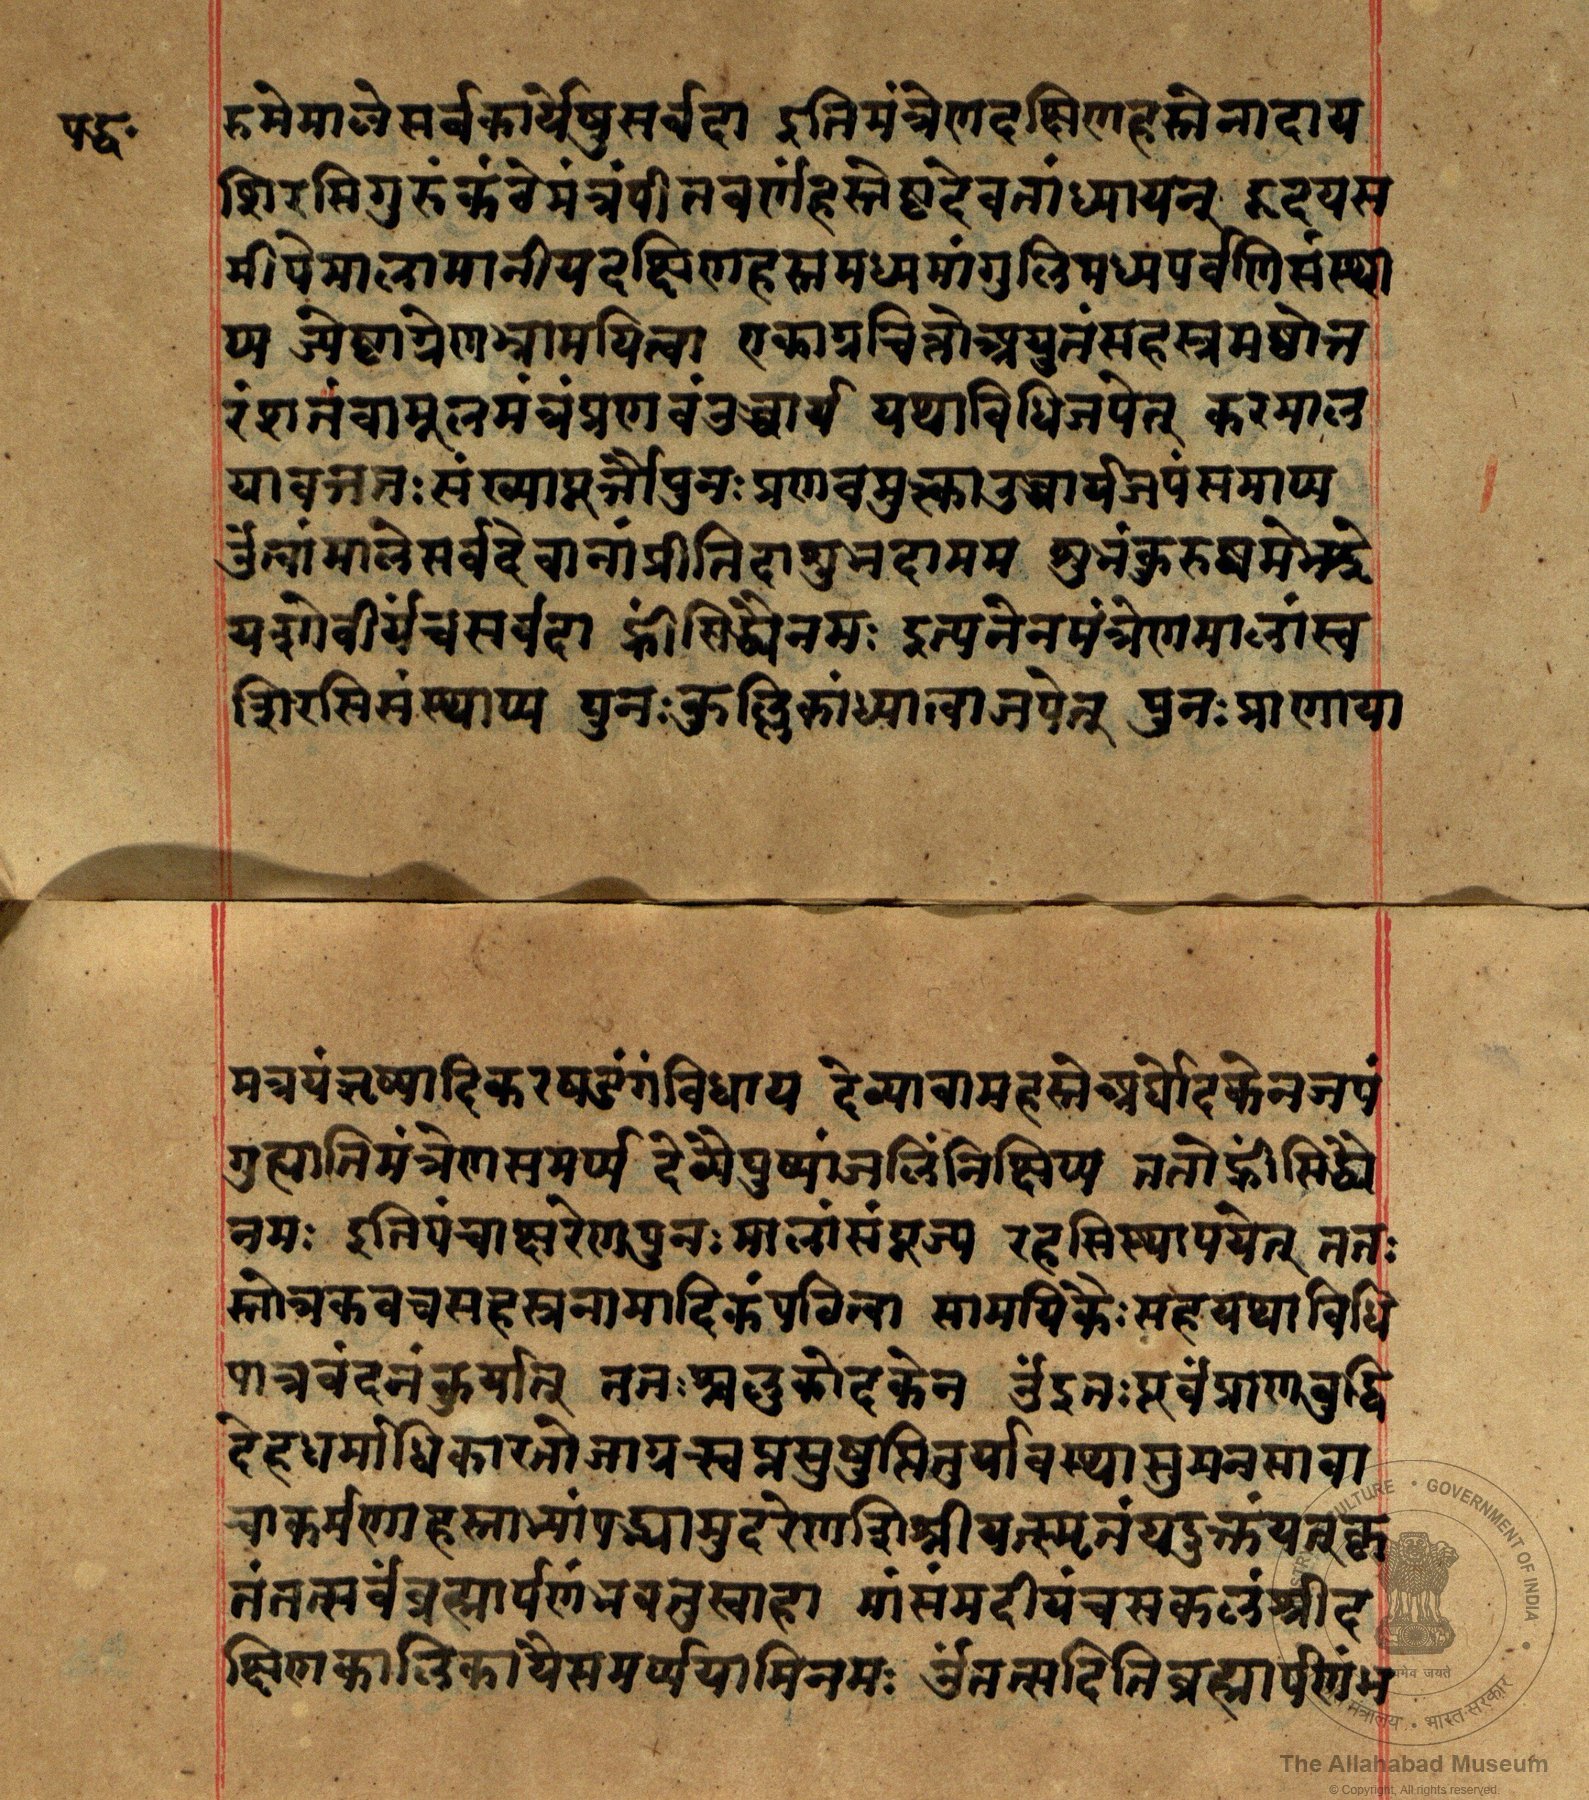 पद्धः
रुमेमालेसर्वकार्येषुसर्वदा इतिमंत्रेणदक्षिणहस्तेनादाय
शिरसिगुरुंकंठेमंत्रंपीतवर्णंहृस्तेष्टदेवतांध्यायन् हृदयस
मीपेमालामानीयदक्षिणहस्तमध्यमांगुलिमध्यपर्वणिसंस्था
प्य ज्येष्ठाग्रेणभ्रामयित्वा एकाग्रचित्तोअयुतंसहस्त्रमष्टोत्त
रंशतंवामूलमंत्रंप्रणवंउच्चार्य यथाविधिजपेत् करमाल
यावत्ततः संख्यापूर्त्तौपुनः प्रणवमुक्त्काउच्चार्यजपंसमाप्य
ॐत्वांमालेसर्वदेवानांप्रीतिदाशुभदामम शुभंकुरुष्वमेभद्रे
यशोवीर्यंचसर्वदा ह्रींसिद्ध्यैनमः इत्यनेनमंत्रेणमालांस्व
शिरसिसंस्थाप्य पुनःकुल्लिकांध्यात्वाजपेत् पुनः प्राणाया
मत्रयंऋष्यादिकरषडंगंविधाय देव्यावामहस्तेअर्घोदकेनजपं
गुह्यातिमंत्रेणसमर्प्य देव्यैपुष्पांजलिंनिक्षिप्य ततोह्रींसिद्ध्यै
नमः इतिपंचाक्षरेणपुनः मालांसंपूज्य रहसिस्थापयेत् ततः
स्तोत्रकवचसहस्त्रनामादिकंपठित्वा सामयिकैः सहयथाविधि
पात्रवंदनंकुर्यात् ततःश्चलुकोदकेन ॐइतःपूर्वंप्राणबुद्धि
देहधर्माधिकारतोजाग्रत्स्वप्नसुषुप्तितुर्यावस्थासुमनसावा
चाकर्मणाहस्ताभ्यांपद्भ्यामुदरेणशिश्नीयत्स्मृतंयदुक्तंयत्कृ
तंतत्सर्वंब्रह्मार्पणंभवतुस्वाहा मांसंमदीयंचसकलंश्रीद
क्षिणकालिकायैसमर्प्पयामिनमः ॐतत्सदितिब्रह्मार्पणंभ
GOVERNMENT OF INDIA
भारत सरकार
The Allahabad Museum
© Copyright, All rights reserved.